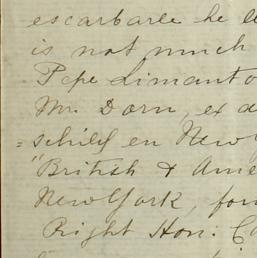 escarbarle he le
is not much
Pepe Limanto
Mr. Dorn, ex d
= schild en New Y
"British & Ame
New York, for
Right Hon: C